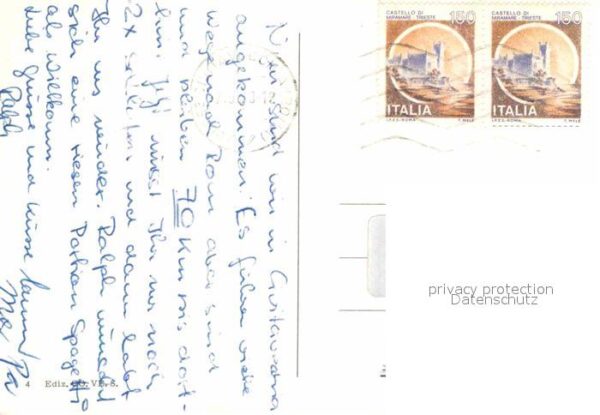 Nun sind wir in Civitavecchia
angekommen. Es führen viele
Wege nach Rom aber wir sind
und bleiben 70 km bis dort-
hin. Jetzt müsst Ihr nur noch
2x schlafen und dann habt
Ihr uns wieder. Ralph wünscht
sich eine riesen Portion Spagetti
als Willkomm.
Liebe Grüsse und Küsse
Ralph
Ma Pa
4 Ediz.
CASTELLO DI
MIRAMARE - TRIESTE
150
ITALIA
I.P.Z.S. - ROMA
CASTELLO DI
MIRAMARE - TRIESTE
150
ITALIA
I.P.Z.S. - ROMA
privacy protection
Datenschutz